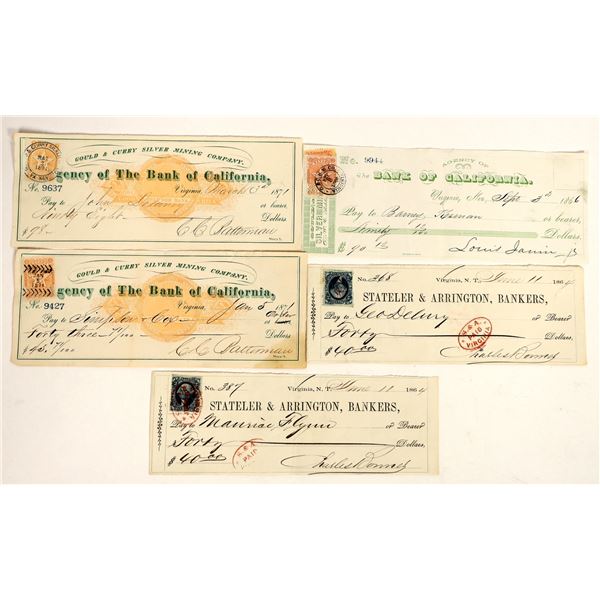 GOULD & CURRY SILVER MINING COMPANY.
gency of The Bank of California,
No. 9637 Virginia, March 3d 1871
Pay to John or bearer,
Ninety Eight Dollars
$98
MAR
GOULD & CURRY SILVER MINING COMPANY.
gency of The Bank of California,
No. 9427 Virginia, Jan 5 1871
Pay to Simpson & Co or
Forty three Dollars
No. 9944
AGENCY OF
The BANK OF CALIFORNIA.
Virginia, Nev. Sept 3d 1866
Pay to Barney or bearer
Ninety Dollars
$90 Louis Janin
SILVER MINING
No. 368 Virginia, N. T. June 11 1864
STATELER & ARRINGTON, BANKERS,
Pay to Geo Delury or Bearer
Forty Dollars,
$40.00 Charles Bonner
S. & A.
PAID
VIRGINIA
No. 387 Virginia, N. T. June 11 1864
STATELER & ARRINGTON, BANKERS,
Pay to Maurice Flynn or Bearer
Forty Dollars,
$40.00 Charles Bonner
S. & A.
PAID